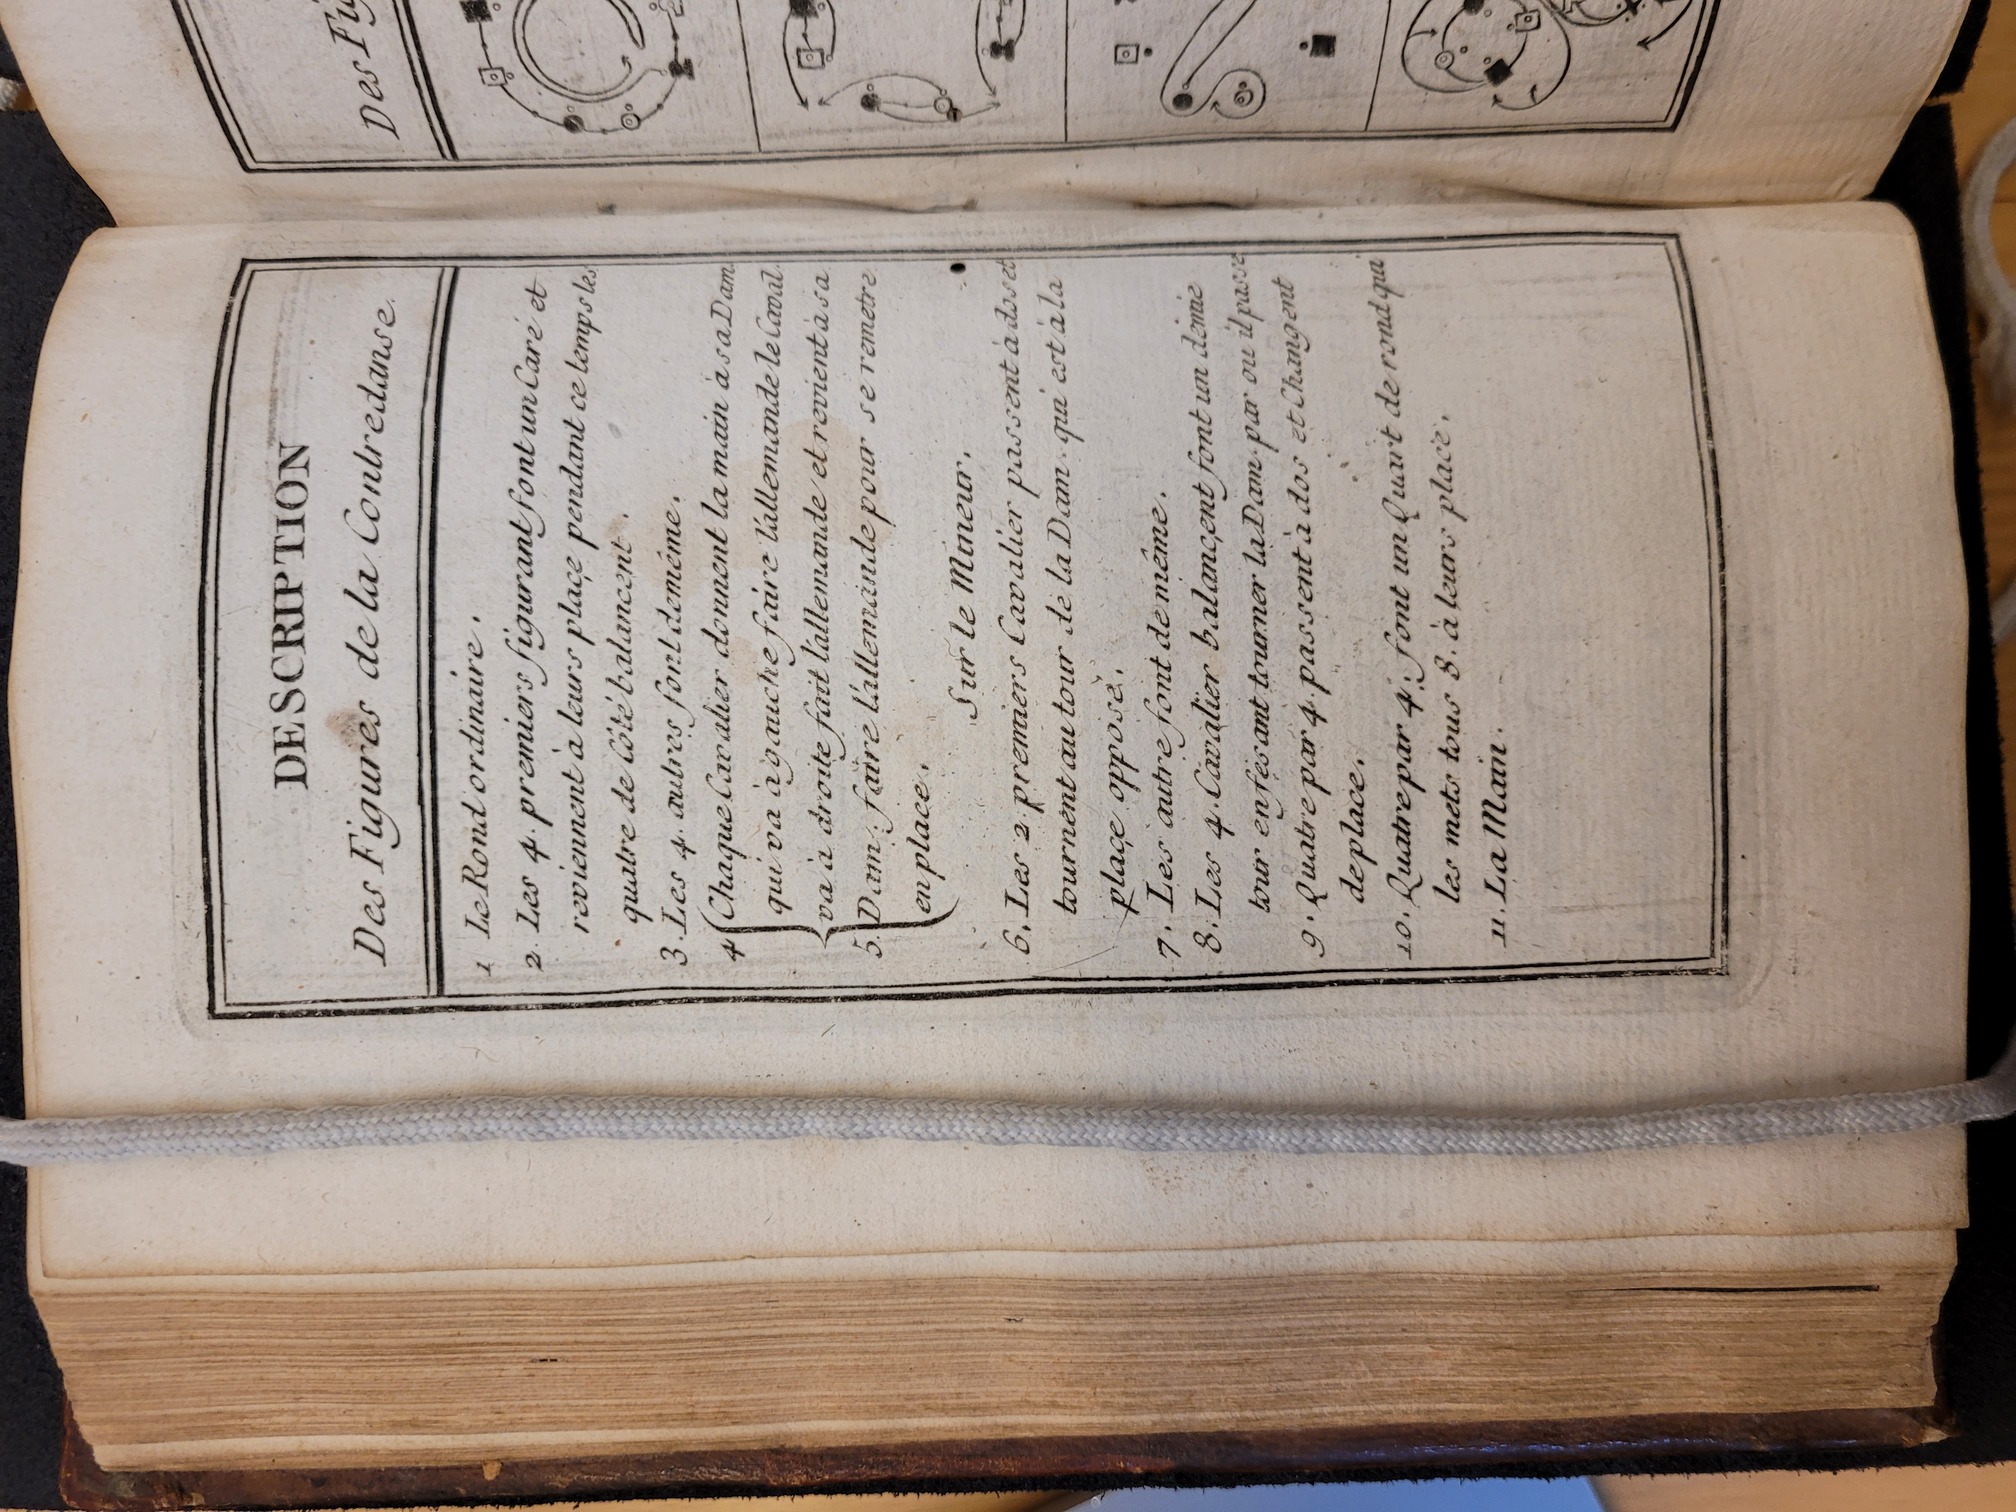 DESCRIPTION
Des Figures de la Contredanse.
1 Le Rond ordinaire.
2. Les 4. premiers figurant font un Caré et
reviennent à leurs place pendant ce temps les
quatre de Côté balancent.
3. Les 4. autres font de même.
4 Chaque Cavalier donnent la main à sa Dam.
qui va à gauche faire l'allemande le Caval.
va à droite fait l'allemande et revient à sa
5. Dam. faire l'allemande pour se remetre
en place.
Sur le Mineur.
6. Les 2. premiers Cavalier passent à dos et
tournent autour de la Dam. qui est à la
place opposé.
7. Les autre font de même.
8. Les 4. Cavalier balancent font un demie
tour en fesant tourner la Dam. par ou il passe
9. Quatre par 4. passent à dos et Changent
de place.
10. Quatre par 4. font un Quart de rond qui
les mets tous 8. à leurs place.
11. La Main.
Des Fig